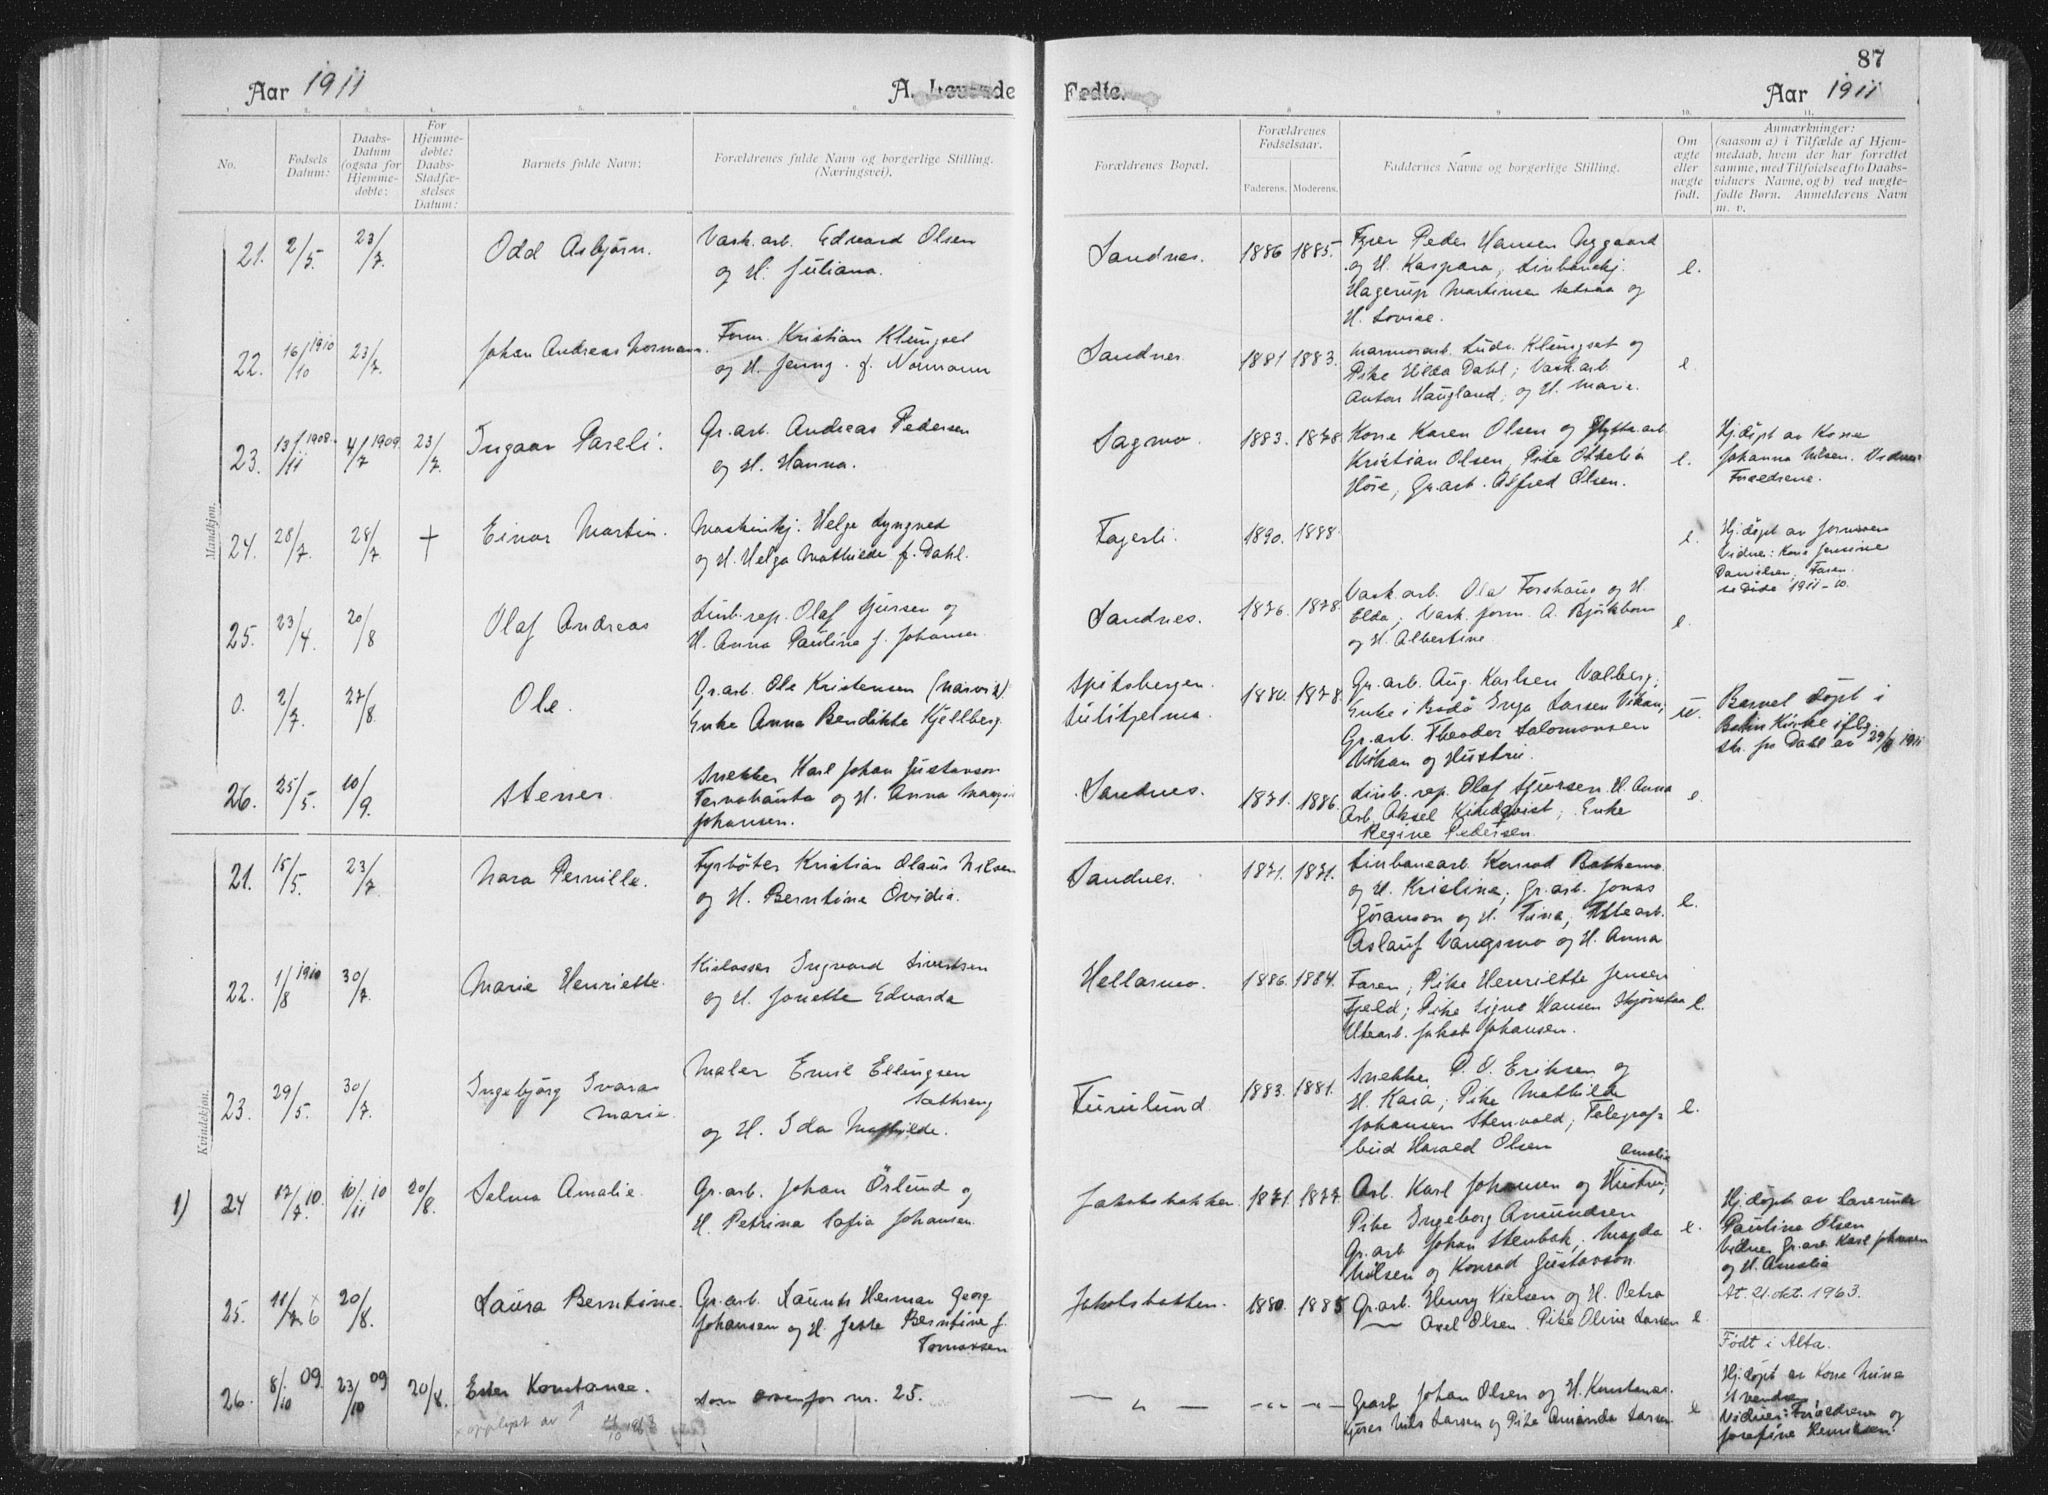 87
Aar 1911
A. Levende
Fødte.
Aar 1911
No.
Fødsels Datum:
Daabs-Datum (ogsaa for Hjemme-døbte:
For Hjemme-døbte: Daabs-Stadfæ-stelses Datum:
Barnets fulde Navn:
Forældrenes fulde Navn og borgerlige Stilling. (Næringsvei).
Forældrenes Bopæl.
Forældrenes Fødselsaar.
Faderens. Moderens.
Faddernes Navne og borgerlige Stilling.
Om ægte eller uægte født.
Anmærkninger: (saasom a) i Tilfælde af Hjem-medaab, hvem der har forrettet samme, med Tilføielse af to Daabs-vidners Navne, og b) ved uægte-fødte Børn. Anmelderens Navn m. v.
Mandkjøn.
21. 2/5. 23/7. Odd Asbjørn. Vask.arb. Edvard Olsen
og H. Juliana.
Sandnes. 1886 1885. Fyrer Peder Hansen Nygaard
og H. Kaspara, Linbanekj.
Hagerup Martinsen Setsaa og
H. Lovise.
e.
22. 16/10 1910 23/7. Johan Andreas Normann. Form. Kristian Klungset
og H. Jenny f. Normann
Sandnes. 1881 1883. Marmorarb. Ludv. Klungset og
Pike Hilda Dahl; Vask.arb
Anton Haugland, og H. Marie.
e.
23. 13/11 1908. 4/7 1909 23/7. Ingvar Pareli. Gr.arb. Andreas Pedersen
og H. Hanna.
Sagmo. 1883. 1878. Kone Karen Olsen og Hytte.arb
Kristian Olsen, Pike Othelia
Hose, Gr.arb. Alfred Olsen.
e. Hj.døpt av Kone
Johanna Nilsen. Vidner
Forældrene.
24. 28/7. 28/7. + Einar Martin. Maskinkj. Helge Lyngved
og H. Helga Mathilde f. Dahl.
Fagerli. 1890. 1888.
e. Hj.døpt av Jormoren
Vidne: Kone Jensine
Danielsen, Faren.
se Døde 1911 - 10.
25. 23/4. 20/8 Olaf Andreas Linb.rep. Olaf Sjursen og
H. Anna Pauline f. Johansen
Sandnes. 1876. 1878. Vask.arb. Ola Forshaug og H.
Elda, Vask.form. A. Björkbom
og H. Albertine
e.
0. 2/7. 27/8. Ole. Gr.arb. Ole Kristensen (Narvik)
Enke Anna Bendikte Kjellberg.
Spitsbergen.
Sulitjelma. 1880. 1878. Gr.arb. Aug. Karlsen Valberg;
Enke i Bodø Inga Larsen Vikan,
Gr.arb. Theodor Salomonsen
Vikan og Hustru.
u. Barnet døpt i
Bodin Kirke iflg
skr. fra Dahl av 29/8 1911
26. 25/5. 10/9. Stener. Snekker Karl Johan Gustavson
Tervahauta og H. Anna Margit
Johansen.
Sandnes. 1871. 1886. Linb.rep. Olaf Sjursen. H. Anna
Arb. Aksel Kihlqvist; Enke
Regine Pedersen.
e.
Kvindekjøn.
21. 15/5. 23/7. Nora Pernille. Fyrbøter Kristian Olaus Nilsen
og H. Berntine Ovidia.
Sandnes. 1871. 1871. Linbanearb. Konrad Bakkemo
og H. Kristine; Gr.arb. Jonas
Göranson og H. Trina; Utearb.
Aslauf Vangsmo og H. Anna
e.
22. 1/8 1910 30/7. Marie Henriette. Kislasser Ingvard Sivertsen
og H. Jonette Edvarda
Hellarmo. 1886. 1884. Faren, Pike Henriette Jensen
Fjeld; Pike Signe Hansen Skjønstaa
Utearb. Jakob Johansen.
e.
23. 29/5. 30/7. Ingebjørg Svara
Marie. Maler Emil Ellingsen
Sæthreng
og H. Ida Mathilde.
Furulund. 1883. 1881. Snekker P. O. Eriksen og
H. Kaia; Pike Mathilde
Johansen Stenvold; Telegraf-
bud Harald Olsen
e.
1) 24 17/7. 10. 10/11 10 20/8. Selma Amalie. Gr.arb. Johan Öslund og
H. Petrina Sofia Johansen.
Jakobsbakken 1871. 1877. Arb. Karl Johansen og Hustru, Amalie
Pike Ingeborg Amundsen
Gr.arb Johan Stenbak, Magda
Nilsen og Konrad Gustavson
e. Hj.døpt av Lærerinde
Pauline Olsen
Vidner Gr.arb. Karl Johansen
og H. Amalia
25. 11/7 x 6 20/8. Laura Berntine. Gr.arb. Laurits Herman Georg
Johansen og H. Jette Berntine f.
Tomassen
Jakobsbakken. 1880. 1885 Gr.arb. Henry Nielsen og H. Petra
— Axel Olsen. Pike Oline Larsen
e. At. 21. okt. 1963.
Født i Alta.
26. 8/10 09. 23/10 09 20/8. Ester Konstanse. som ovenfor nr. 25.
— „ — - „ - - „ - Gr.arb Johan Olsen og H. Konstanse.
Kjører Nils Larsen og Pike Amanda Larsen
e Hj.døpt av Kone Mina
Svendsen,
Vidner: Forældrene og
Josefine Henriksen.
x opplyst av ↑ 21/10 1963